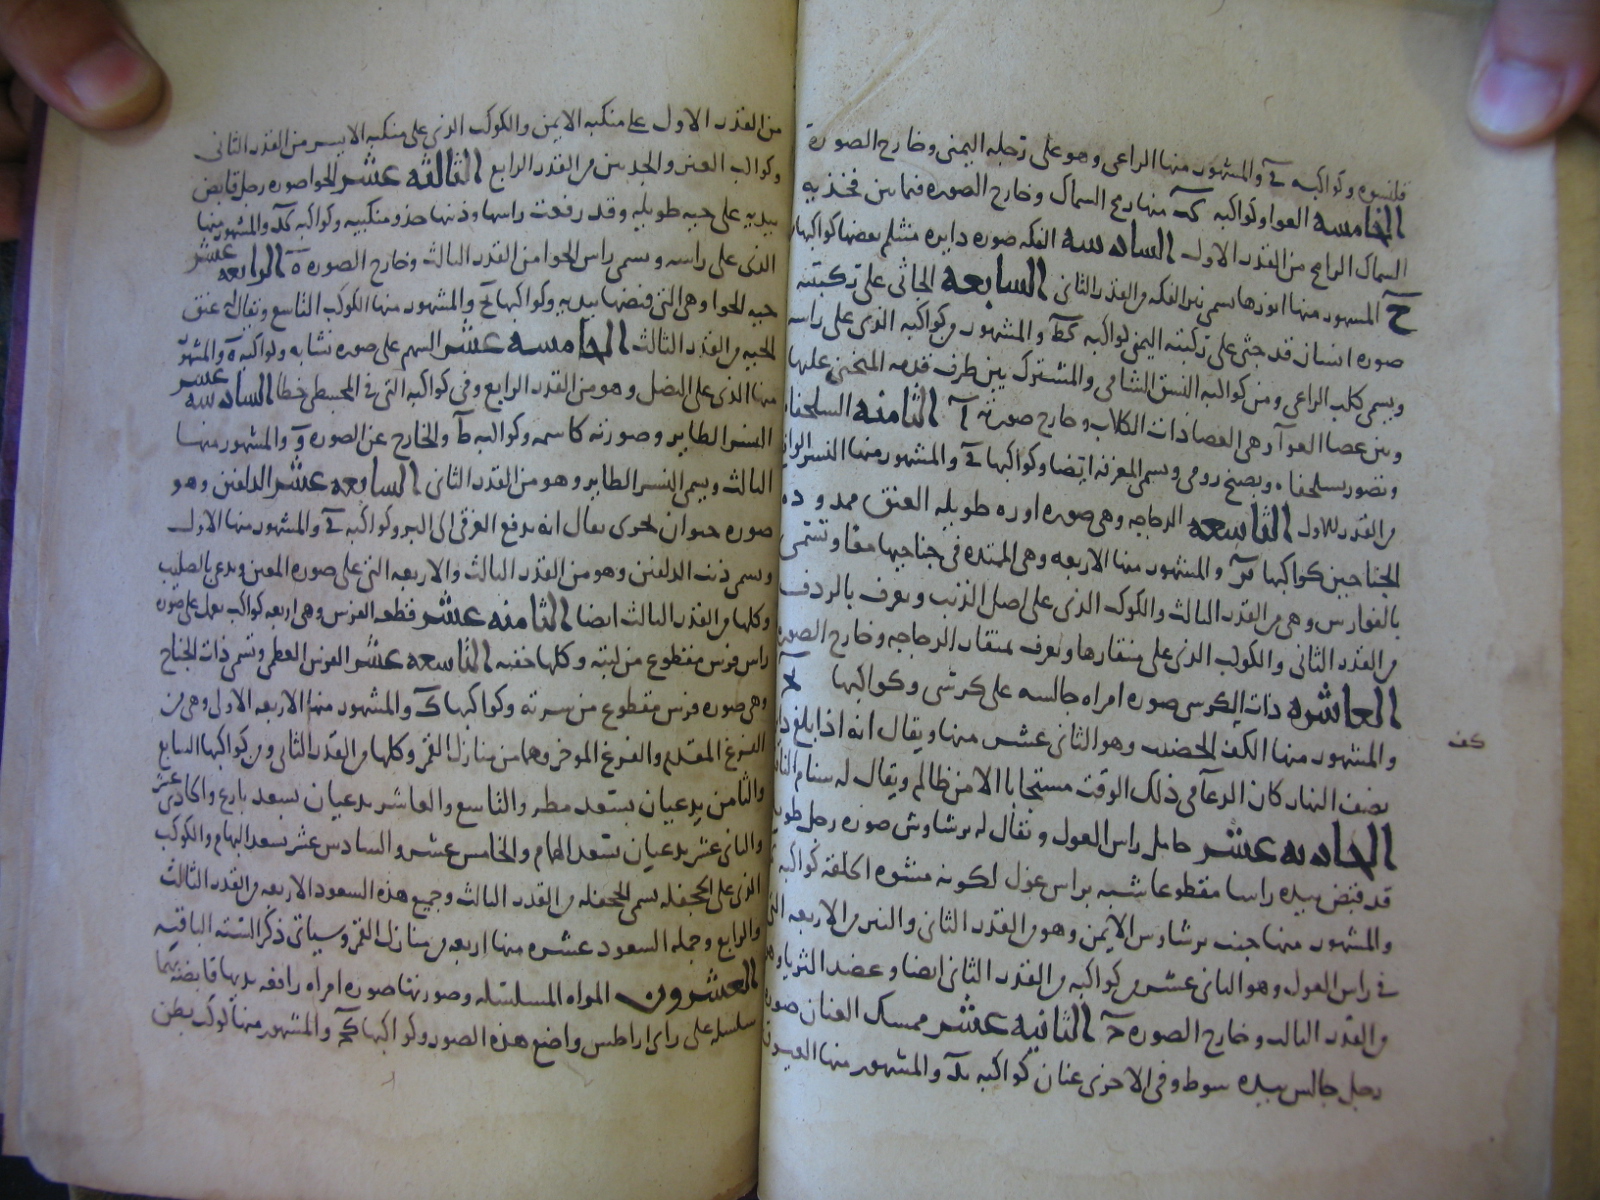 قلنسوه وكواكبه والمشهور منها الراعي وهو على رجله اليمنى وخارج الصوره
الخامسه العوا وكواكبه منها رمح السماك وخارج الصوره فيما بين فخذيه
السماك الرامح من القدر الاول السادسه الفكه صوره دايره منثلم بعضها كواكبها
ح المشهور منها انورها يسمى نير الفكه من القدر الثاني السابعه الجاثي على ركبتيه
صوره انسان قد جثى على ركبته اليمنى كواكبه كط والمشهور من كواكبه الذي على راسه
ويسمى كلب الراعي ومن كواكبه النسق الشامي والمشترك بين طرف قدمه المنحني عليها
وبين عصا العوا وهي العصا ذات الكلاب وخارج صورته ا الثامنه السلحفاه
وتصور سلحفاه وبصنج رومي ويسمى المعزفه ايضا وكواكبها والمشهور منها النسر الواقع
من القدر الاول التاسعه الدجاجه وهي صوره اوزه طويله العنق ممدوده
الجناحين كواكبها والمشهور منها الاربعه وهي الممتده في جناحيها معا وتسمى
بالفوارس وهي من القدر الثالث والكوكب الذي على اصل الذنب ويعرف بالردف
من القدر الثاني والكوكب الذي على منقارها ويعرف بمنقار الدجاجه وخارج الصوره
العاشره ذات الكرسي صوره امراه جالسه على كرسي وكواكبها
والمشهور منها الكف الخضيب وهو الثاني عشر منها ويقال انه اذا بلغ
كف
نصف النهار كان الدعا في ذلك الوقت مستجابا الا من ظالم ويقال له سنام الناقه
الحاديه عشر حامل راس الغول ويقال له برشاوش صوره رجل
قد قبض بيده راسا مقطوعا شبه براس غول لكونه مشوه الخلقه كواكبه
والمشهور منها جنب برشاوس الايمن وهو من القدر الثاني والنير من الاربعه التي
في راس الغول وهو الثاني عشر من كواكبه من القدر الثاني ايضا وعضد الثريا وهو
من القدر الثالث وخارج الصوره الثانيه عشر ممسك العنان صوره
رجل جالس بيده سوط وفي الاخرى عنان كواكبه يد والمشهور منها العيوق
من القدر الاول على منكبه الايمن والكوكب الذي على منكبه الايسر من القدر الثاني
وكواكب العنز والجديين من القدر الرابع الثالثه عشر الحوا صوره رجل قابض
بيديه على حيه طويله وقد رفعت راسها وذنبها حذو منكبيه وكواكبه كد والمشهور منها
الذي على راسه ويسمى راس الحوا من القدر الثالث وخارج الصوره ه الرابعه عشر
حيه الحوا وهي التي قبضها بيديه وكواكبها والمشهور منها الكوكب التاسع ويقال له عنق
الحيه من القدر الثالث الخامسه عشر السهم على صوره نشابه وكواكبه ه والمشهور
منها الذي على النصل وهو من القدر الرابع وفي كواكبه التي في المجسطي خطا السادسه عشر
النسر الطاير وصورته كاسمه وكواكبه ط والخارج عن الصوره و والمشهور منها
الثالث ويسمى النسر الطاير وهو من القدر الثاني السابعه عشر الدلفين وهو
صوره حيوان بحري يقال انه يدفع الغرقى الى البر وكواكبه والمشهور منها الاول
ويسمى ذنب الدلفين وهو من القدر الثالث والاربعه التي على صوره المعين ويدعى بالصليب
وكلها من القدر الثالث ايضا الثامنه عشر قطعه الفرس وهي اربعه كواكب على صوره
راس فرس مقطوع من لبته وكلها خفيه التاسعه عشر الفرس العظمى وتسمى ذات الجناح
وهي صوره فرس مقطوع من سرته وكواكبها ك والمشهور منها الاربعه الاول وهي من
الفرغ المقدم والفرغ الموخر وهما من منازل القمر وكلها من القدر الثاني ومن كواكبها السابع
والثامن يدعيان بسعد مطر والتاسع والعاشر يدعيان بسعد بارع والحادي عشر
والثاني عشر يدعيان بسعد الهمام والخامس عشر والسادس عشر بسعد البهام والكوكب
الذي على الجحفله يسمى الجحفله من القدر الثالث وجميع هذه السعود الاربعه من القدر الثالث
والرابع وجمله السعود عشره منها اربعه من منازل القمر وسياتي ذكر السته الباقيه
العشرون المراه المسلسله وصورتها صوره امراه رافعه يديها قابضه بهما
سلسله على راي اراطس واضع هذه الصور وكواكبها كج والمشهور منها كوكب بطن